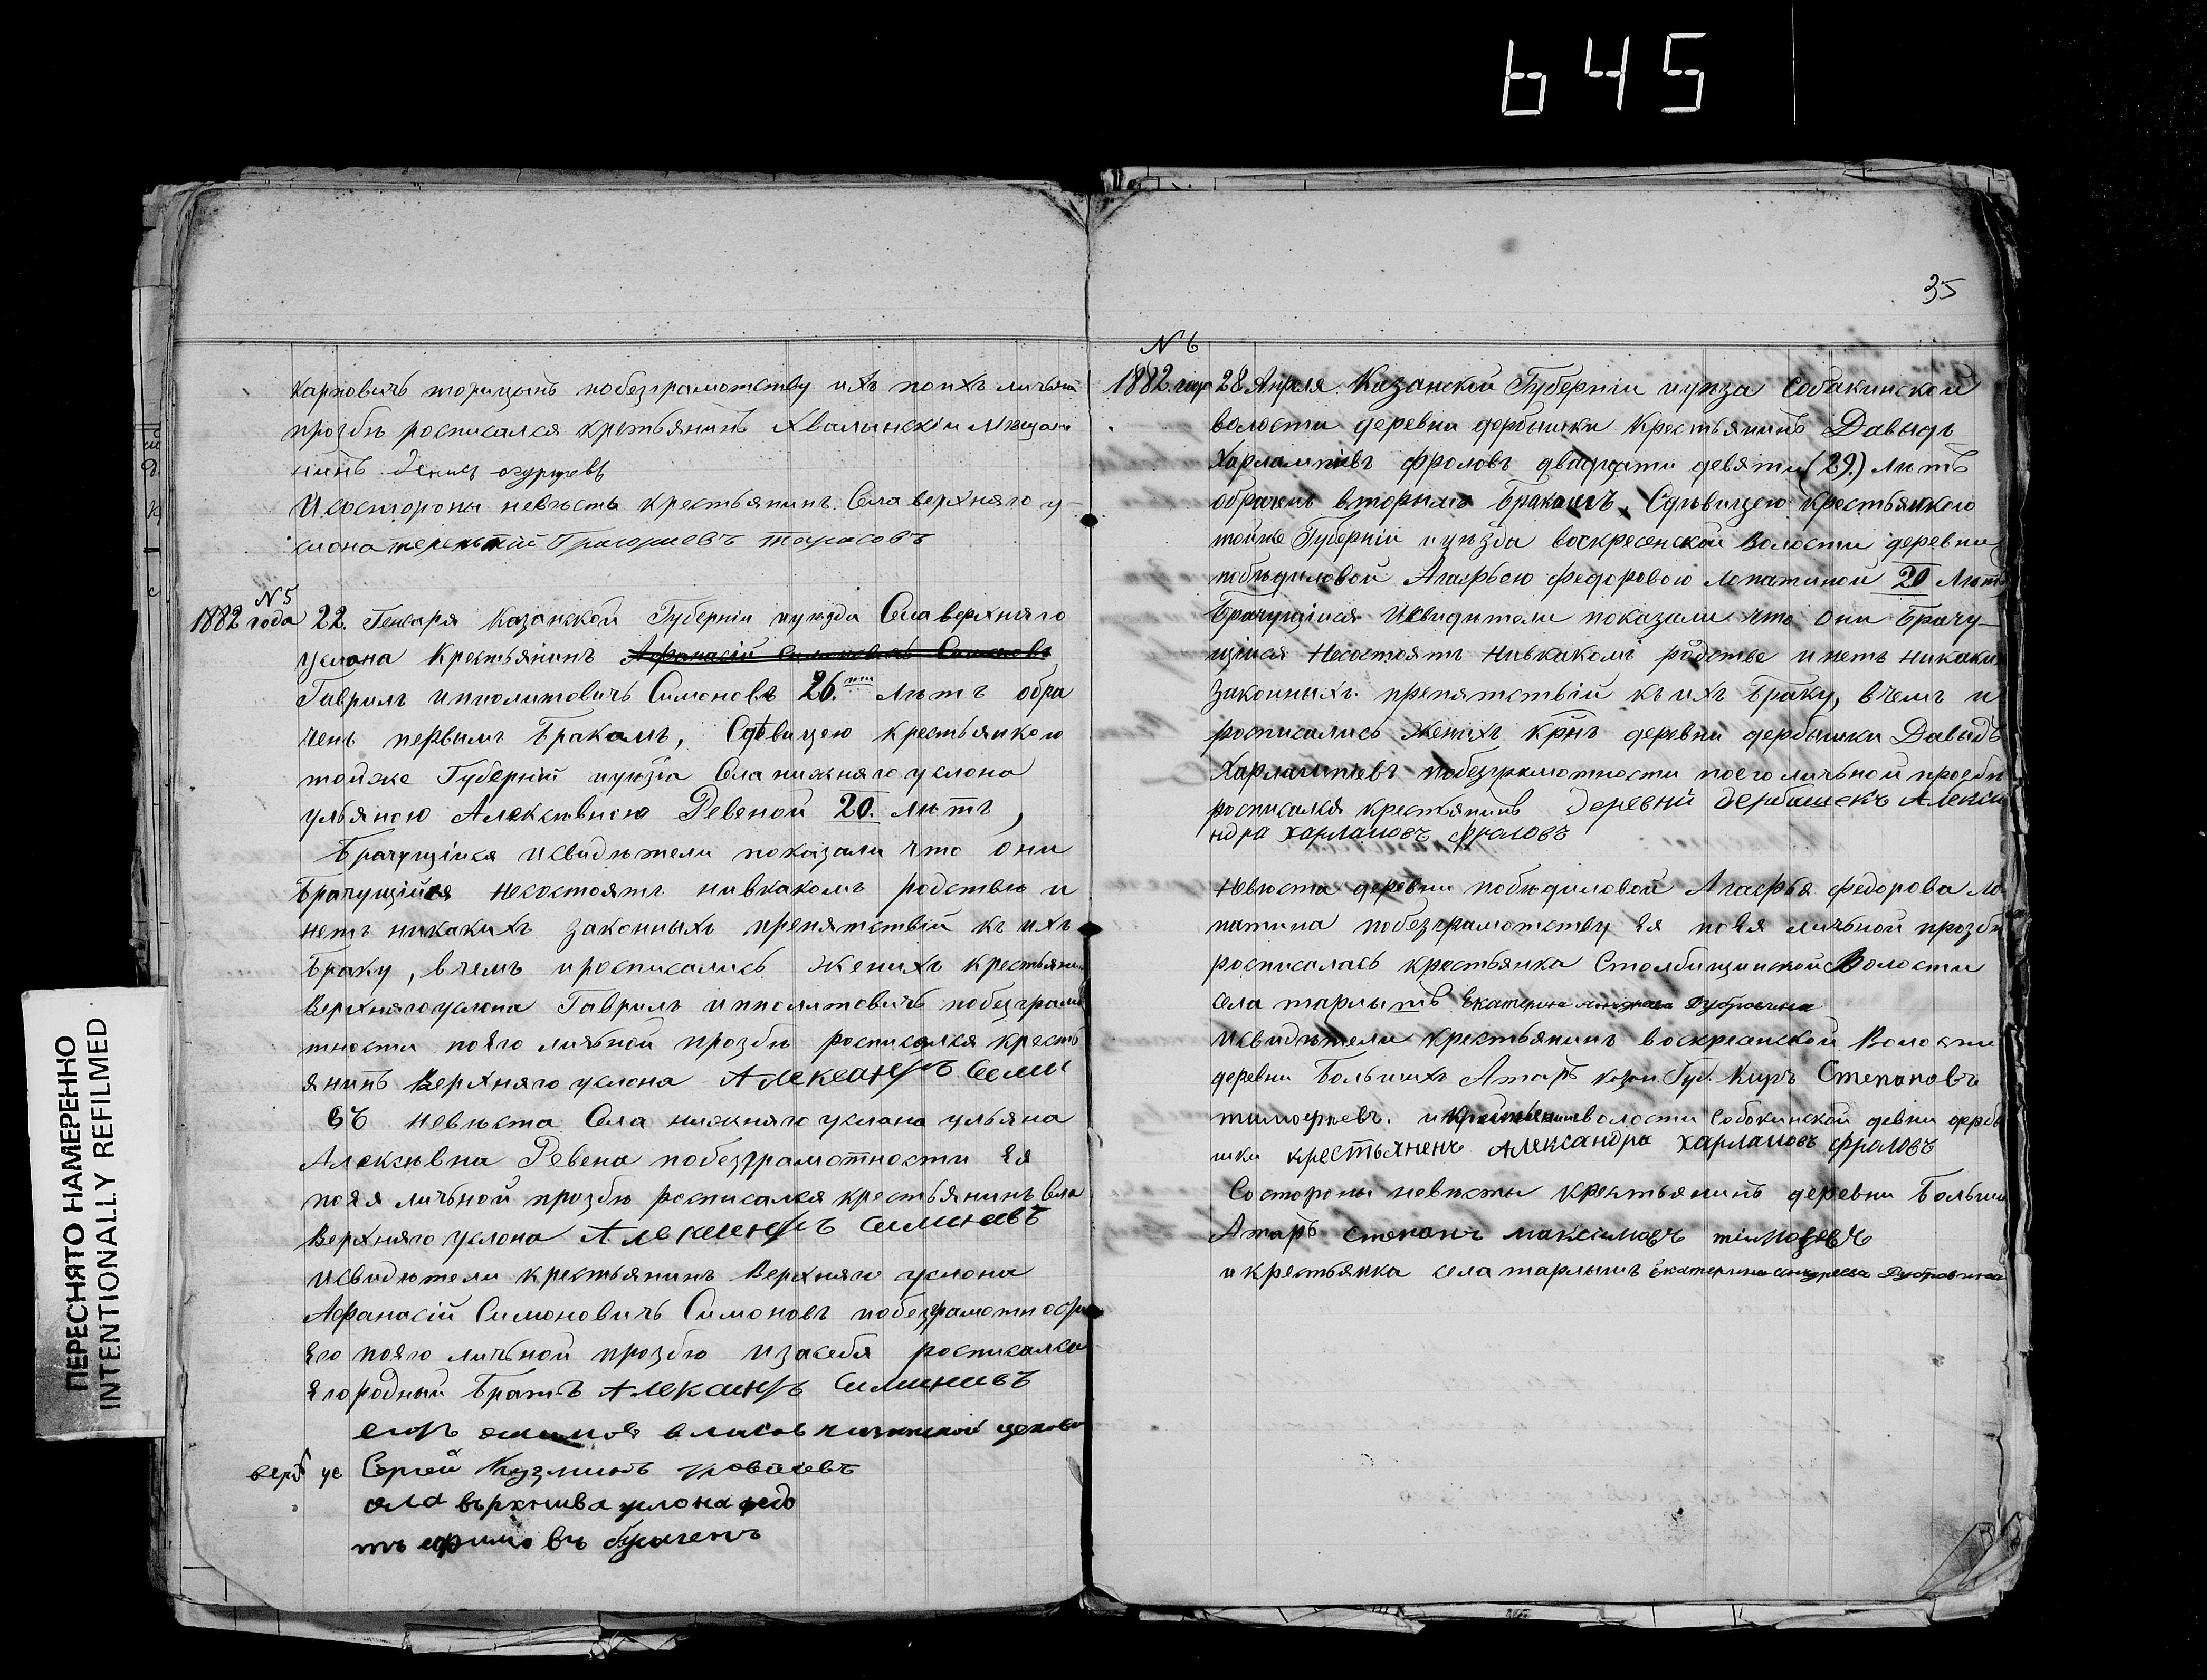 645
35
карповичь торицынъ побезграмотству ихъ поихъ личьной
прозбѣ росписался крестьянинъ Хвалынскiи Мѣщан
нинъ
Исостороны невѣсты крестьянинъ Села верхняго у-
слона терентiй Григориевъ тарасовъ
N5
1882 года 22. Генваря Казанской Губернiи иуѣзда Села верхняго
услона Крестьянинъ Афанасiй Симоновичь Симоновъ
Гаврилъ ипполитовичь Симоновъ 26. лѣтъ обра
ченъ первымъ Бракомъ, Сдѣвицею крестьянкою
тойже Губернiи иуѣзда Села нижняго услона
ульяною Алексѣвною Ревеной 20. лѣтъ,
Брачущiися Исвидѣтели показали что они
Брачущiйся несостоятъ нивкакомъ родствѣ и
нетъ никакихъ законныхъ препятствiй къ ихъ
Браку, вчемъ иросписались Женихъ крестьянин
Верхняго услона Гаврилъ ипполитовичь побезграмо
тности пояго личьной прозбѣ росписался кресть
янинъ Верхняго услона Александръ Симо
въ невѣста Села нижняго услона ульяна
Алексѣвна Ревена побезграмотности ѣя
поѣя личьной прозбѣ росписался крестьянинъ села
Верхняго услона Александръ Симоновъ
Исвидѣтели крестьянинъ Верхняго услона
Афанасiй Симоновичь Симоновъ побезграмотности
ѣго пояго личьной прозбю изасебя росписался
ягородный Братъ Александръ Симоновъ
Сергей Кузмичь
села върхнива услона федо
тъ ефимовъ
N 6
1882. года 28. Апреля. Казанской Губернiи иуѣзда Собакинской
волости деревни дербышки Крестьянинъ Давыдъ
Харлампiевъ фроловъ двадцати девяти (29.) лѣтъ
обраченъ вторымъ Бракомъ, Сдѣвицею Крестьянкою
тойже Губернiи иуѣзда воскресенской Волости деревни
побѣдиловой Агафьею федоровою Лопатиной 20 лѣтъ
Брачущiися Исвидѣтели показали что они Брачу-
щiися Несостоятъ нивкакомъ родстве инетъ никаких
законныхъ препятствiй къ ихъ Браку, вчемъ и
росписались Женихъ крнъ деревни дербышки Давыдъ
Харлампiевъ побезграмотности поего личьной прозбѣ
росписался крестьянинъ деревни дербашекъ Алекса
ндра харламовъ фроловъ
Невюста деревни побѣдиловой Агафья федорова Ло
патина побезграмотству ѣя поѣя личьной прозбѣ
росписалась крестьянка Столбищинской Волости
села тарлыш Екатерина Андреева Дубровина
Исвидѣтели крестьянинъ воскресенской Волости
деревни Большихъ Атаръ казан. Губ. Киръ Степановъ
тимофѣевъ. и волости Собокинской девни дерб
шки крестьяненъ Александра харламовъ фроловъ
Состороны невѣсты Крестьянинъ деревни Больши
Атаръ степанъ максiмовъ тiмофеевъ
и крестьянка села тарлышъ Екатерина андреева Дубровина
ПЕРЕСНЯТО НАМЕРЕННО
INTENTIONALLY REFILMED